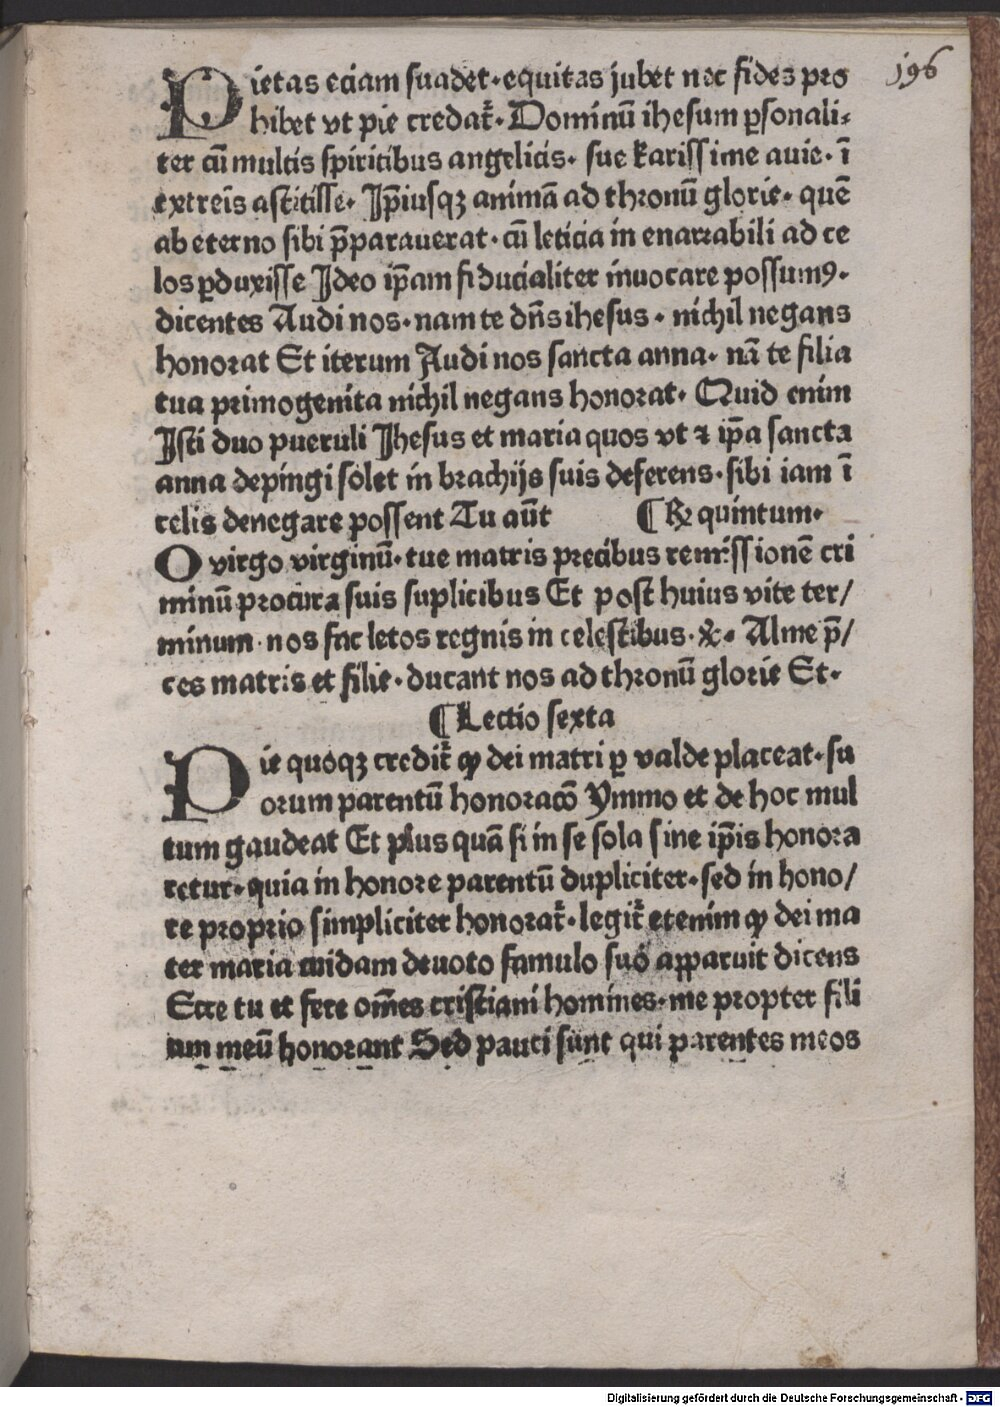 196
Pietas eciam suadet·equitas jubet nec fides pro
hibet vt pie credat̃·Dominū ihesum ꝑsonali⸗
ter cū multis spiritibus angelicis· sue karissime auie· ī
extreīs astitisse· Jp̄iusqꝫ animā ad thronū glorie· quē
ab eterno sibi p̄parauerat·cū leticia in enarrabili ad ce
los ꝑduxisse Jdeo ip̄am fiducialiter inuocare possumꝰ·
dicentes Audi nos·nam te dn̄s ihesus· nichil negans
honorat Et iterum Audi nos sancta anna· nā te filia
tua primogenita nichil negans honorat· Quid enim
Jsti duo pueruli Jhesus et maria quos vt ⁊ ip̄a sancta
anna depingi solet in brachijs suis deferens·sibi iam ī
celis denegare possent Tu aūt ¶ ℞ quintum·
O virgo virginū·tue matris precibus remissionē cri
minū procura suis suplicibus Et post huius vite ter/
minum·nos fac letos regnis in celestibus·⁊c· Alme p̄/
ces matris et filie·ducant nos ad thronū glorie Et·
¶ Lectio sexta
Pie quoqꝫ credit̃ ꝙ dei matri ꝑ valde placeat·su
orum parentū honoracō Ymmo et de hoc mul
tum gaudeat Et plus quā si in se sola sine ip̄is honora
retur·quia in honore parentū dupliciter·sed in hono/
re proprio simpliciter honorat̃·legit̃ etenim ꝙ dei ma
ter maria cuidam deuoto famulo suo apparuit dicens
Ecce tu et fere om̄es cristiani homines·me propter fili
um meū honorant Sed pauci sunt qui parentes meos
Digitalisierung gefördert durch die Deutsche Forschungsgemeinschaft - DFG